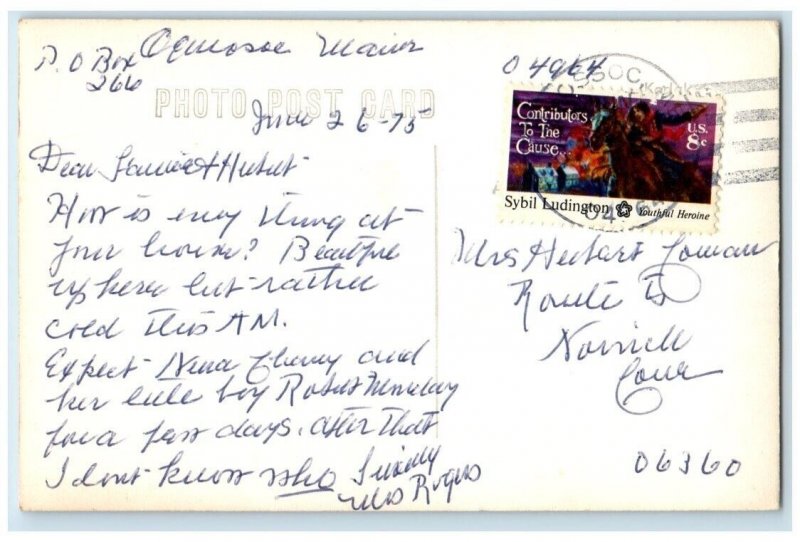 P.O Box Oquossoc Maine
266
04964
PHOTO POST CARD
June 26-75
Contributors
To The
Cause...
U.S.
8c
Sybil Ludington Youthful Heroine
Dear & Hubert
How is every thing at
your house? Beautiful
up here but rather
cold this AM.
Expect Nena and
her little boy Robert Monday
for a few days. after that
I dont know who Sincerely
Mrs Rogers
Mrs Herbert
Route 5
Norwich
Conn
06360